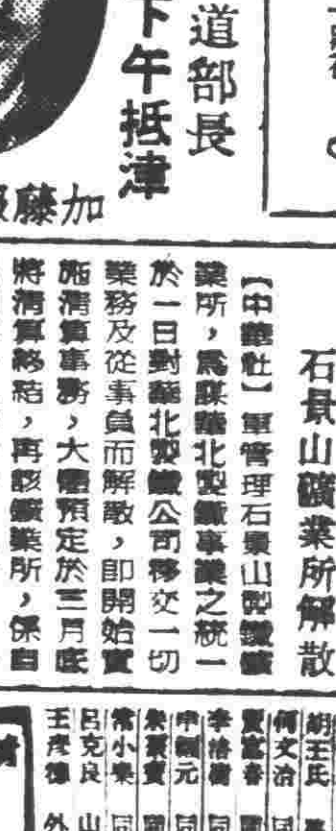 道部長
下午抵津
加藤
石景山礦業所解散
【中華社】軍管理石景山製鐵鑛
業所，爲謀華北製鐵事業之統一
於一日對華北製鐵公司移交一切
業務及從事員而解散，卽開始實
施清算事務，大體預定於三月底
將清算終結，再該鑛業所，係自
胡王氏
何文治 同
賈富春
李治衡 同
申 元 同
常小樂 同
呂克良 山
王彥德 外